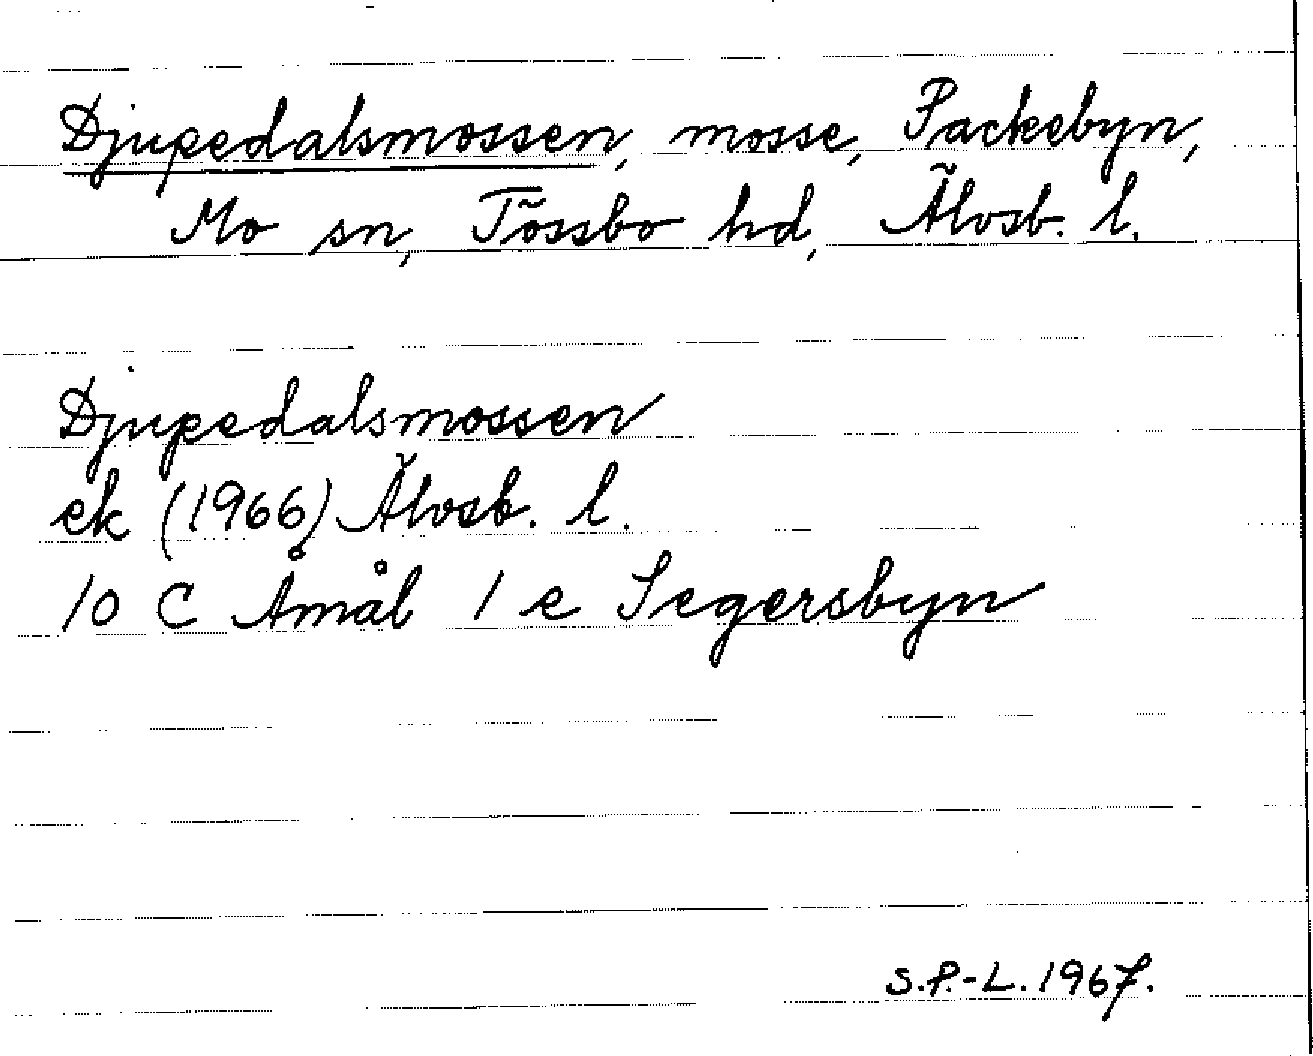 Djupedalsmossen, mosse, Packebyn,
Mo sn, Tössbo hd, Älvsb. l.
Djupedalsmossen
ek (1966) Älvsb. l.
10 C Åmål 1 e Segersbyn
S.P.-L. 1967.